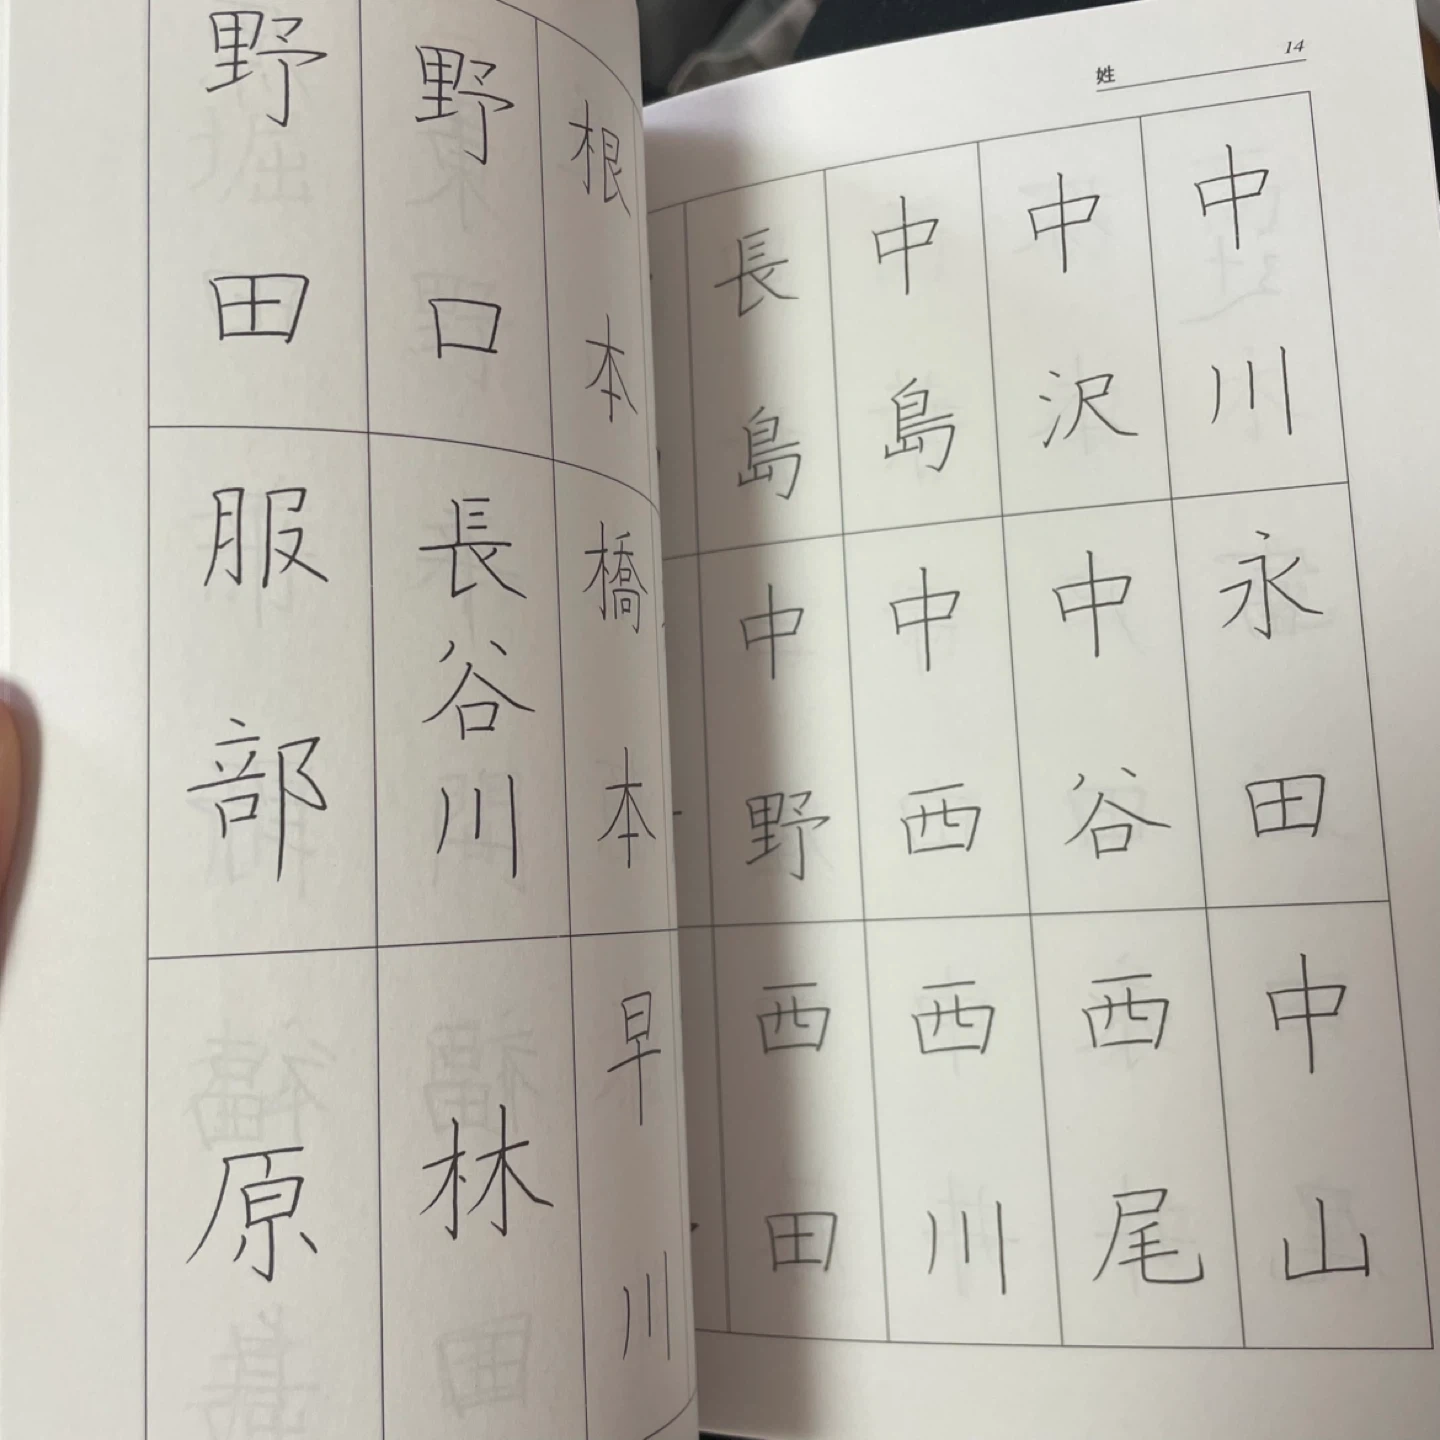 姓
14
中川
永田
中山
中沢
中谷
西尾
中島
中西
西川
長島
中野
西田
根本
橋本
早川
野口
長谷川
林
野田
服部
原